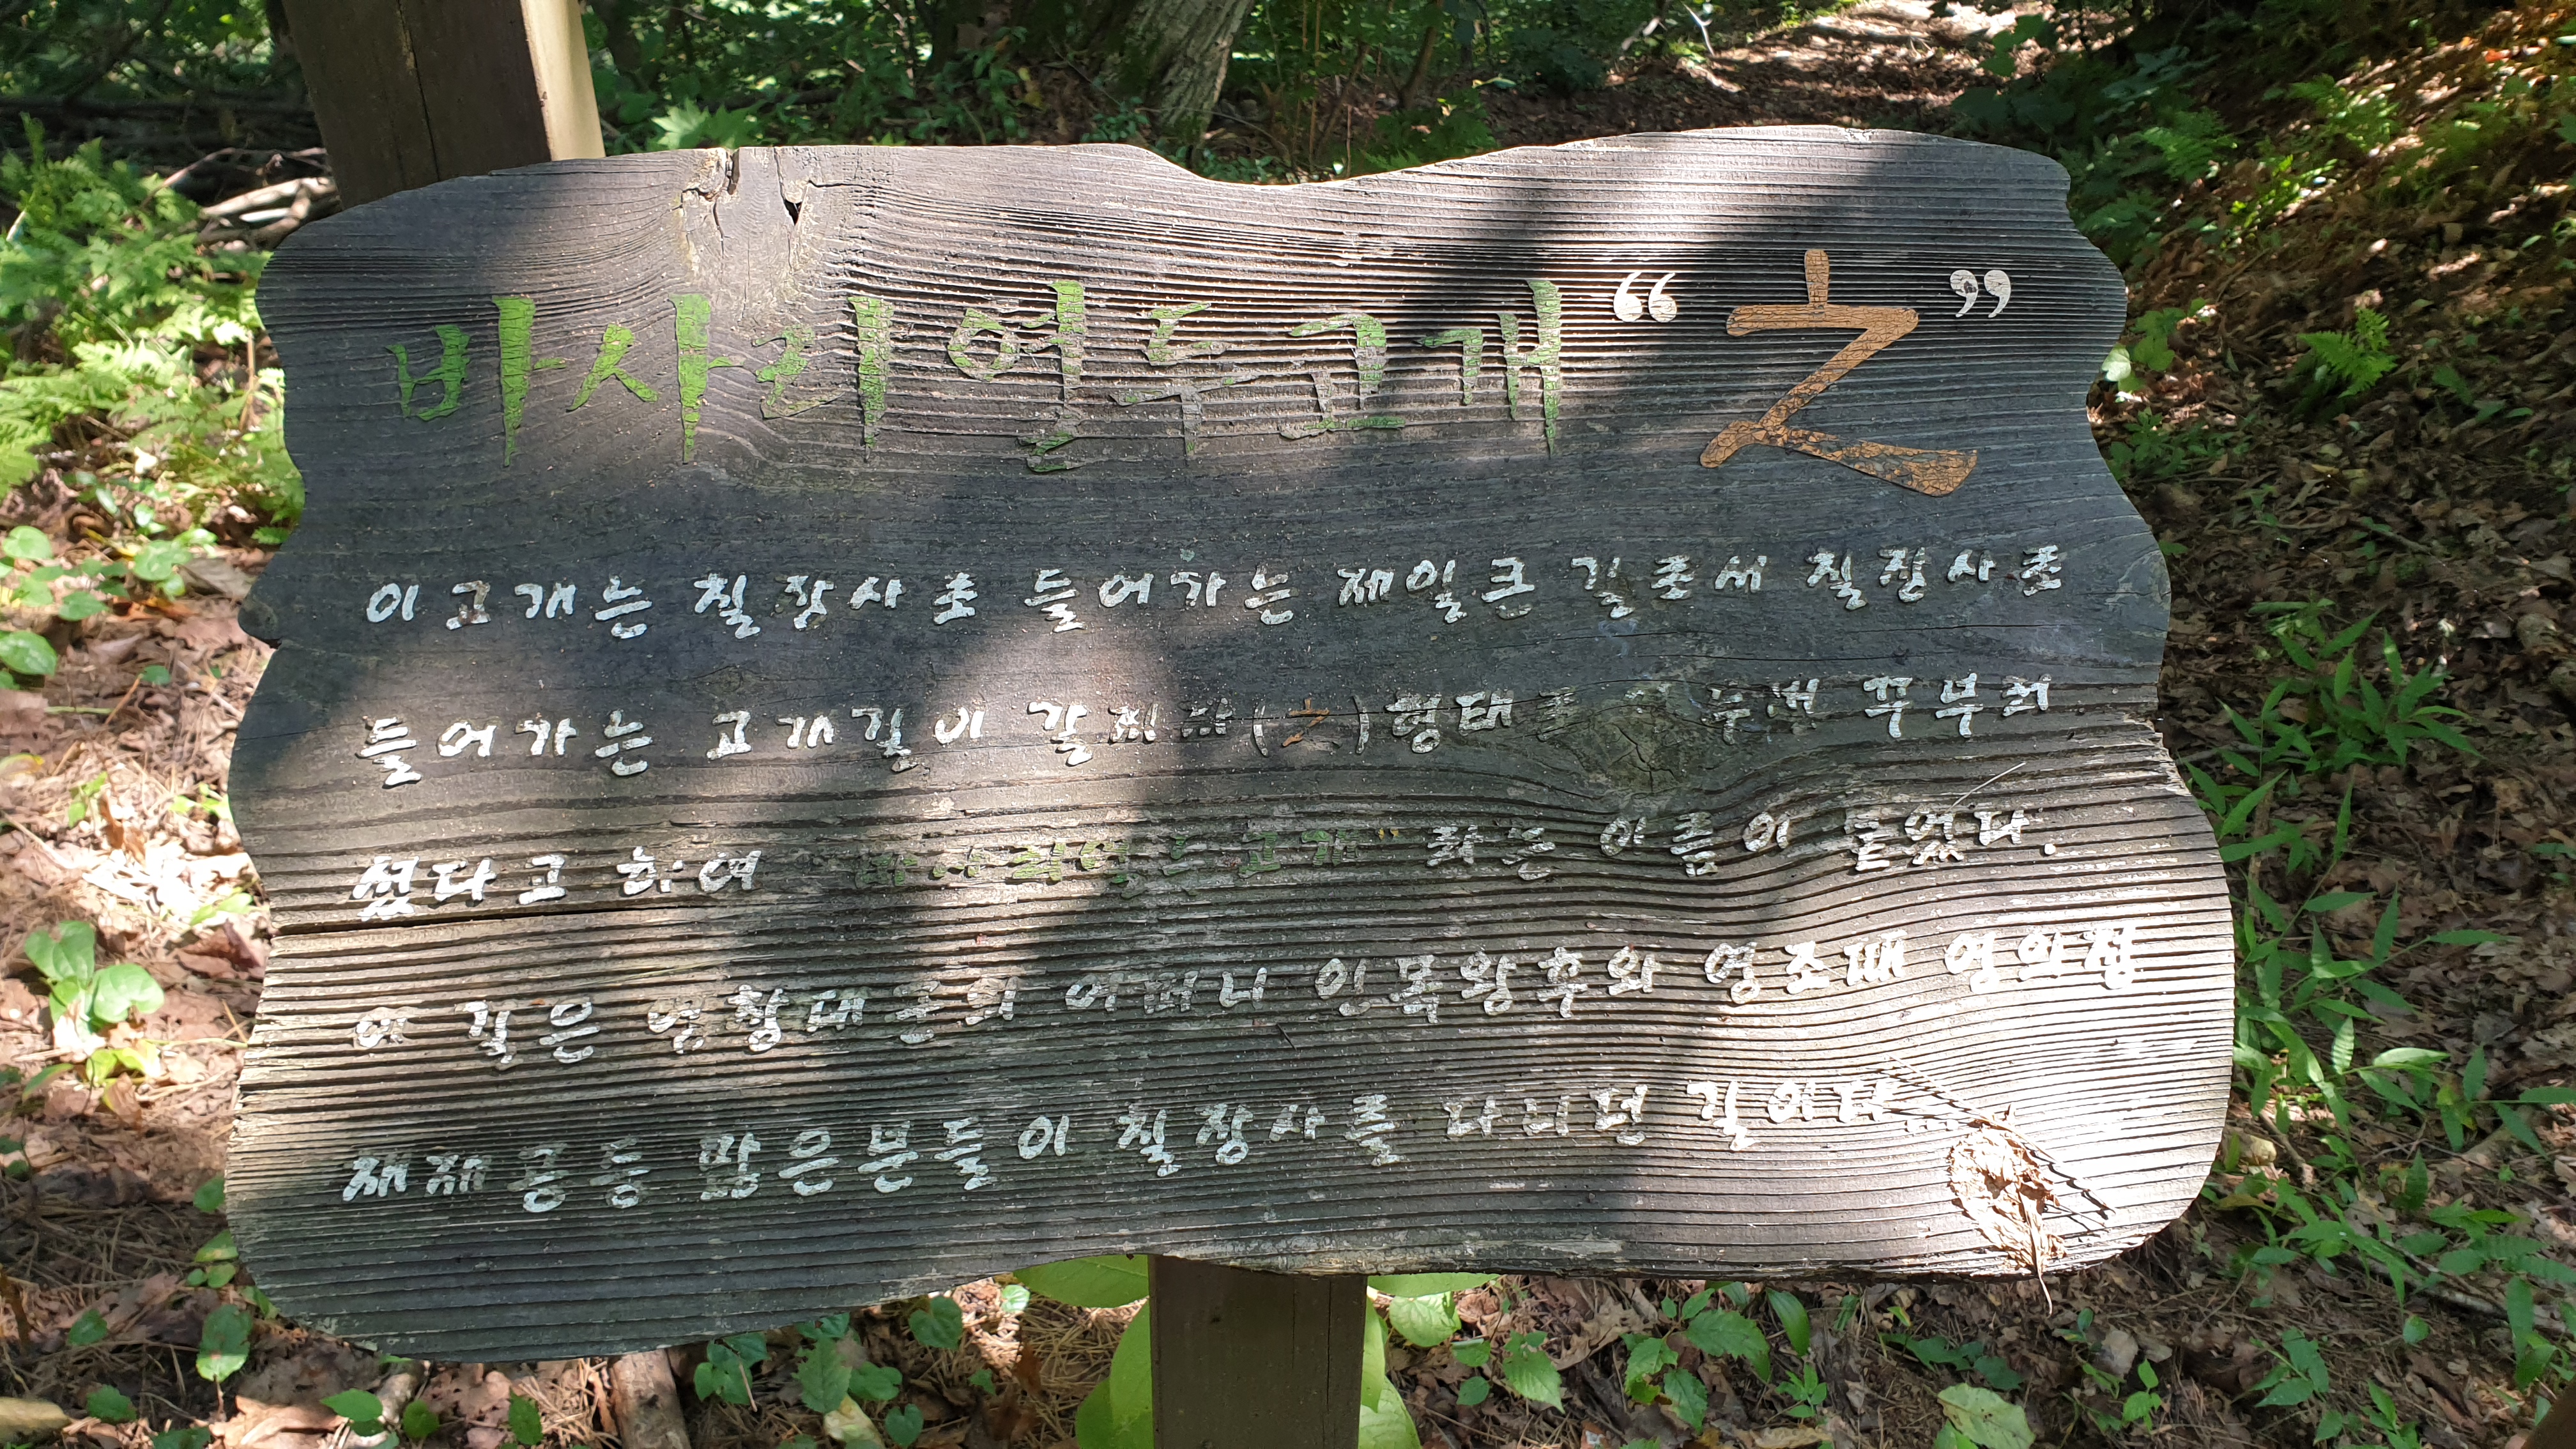 바사리열두고개 “之”
이고개는 칠장사로 들어가는 제일큰 길로서 칠장사로
들어가는 고개길이 갈찌자(之)형태로 두번 꾸부러
졌다고 하여 바사리열두고개” 라는 이름이 붙었다.
이 길은 영창대군의 어머니 인목왕후와 영조때 영의정
채재공등 많은분들이 칠장사를 다니던 길이다.